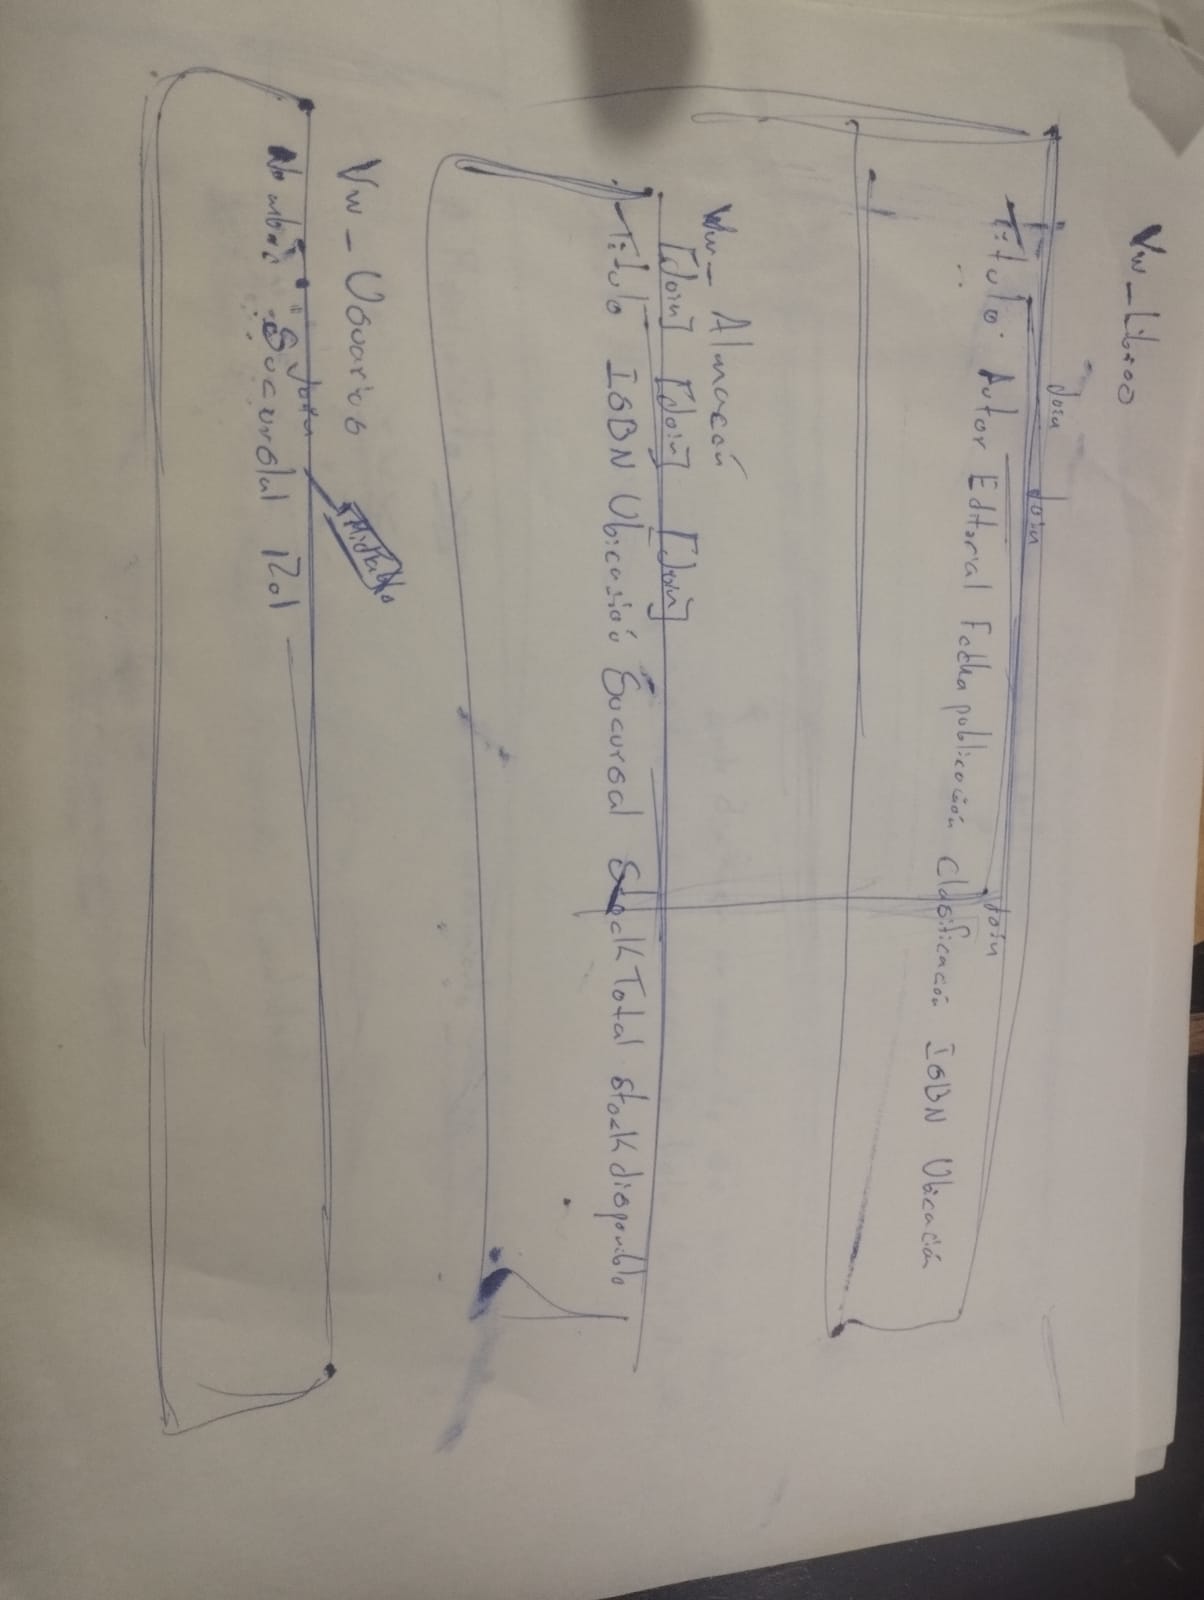 Vw_Libros
Join Join Join
Título Autor Editorial Fecha publicación Clasificación ISBN Ubicación
Vw_ Almacén
[Join] [Join] [Join]
Título ISBN Ubicasión Sucursal Stock Total Stock disponible
Vw_Usuarios
Join
Nombre Sucursal Rol